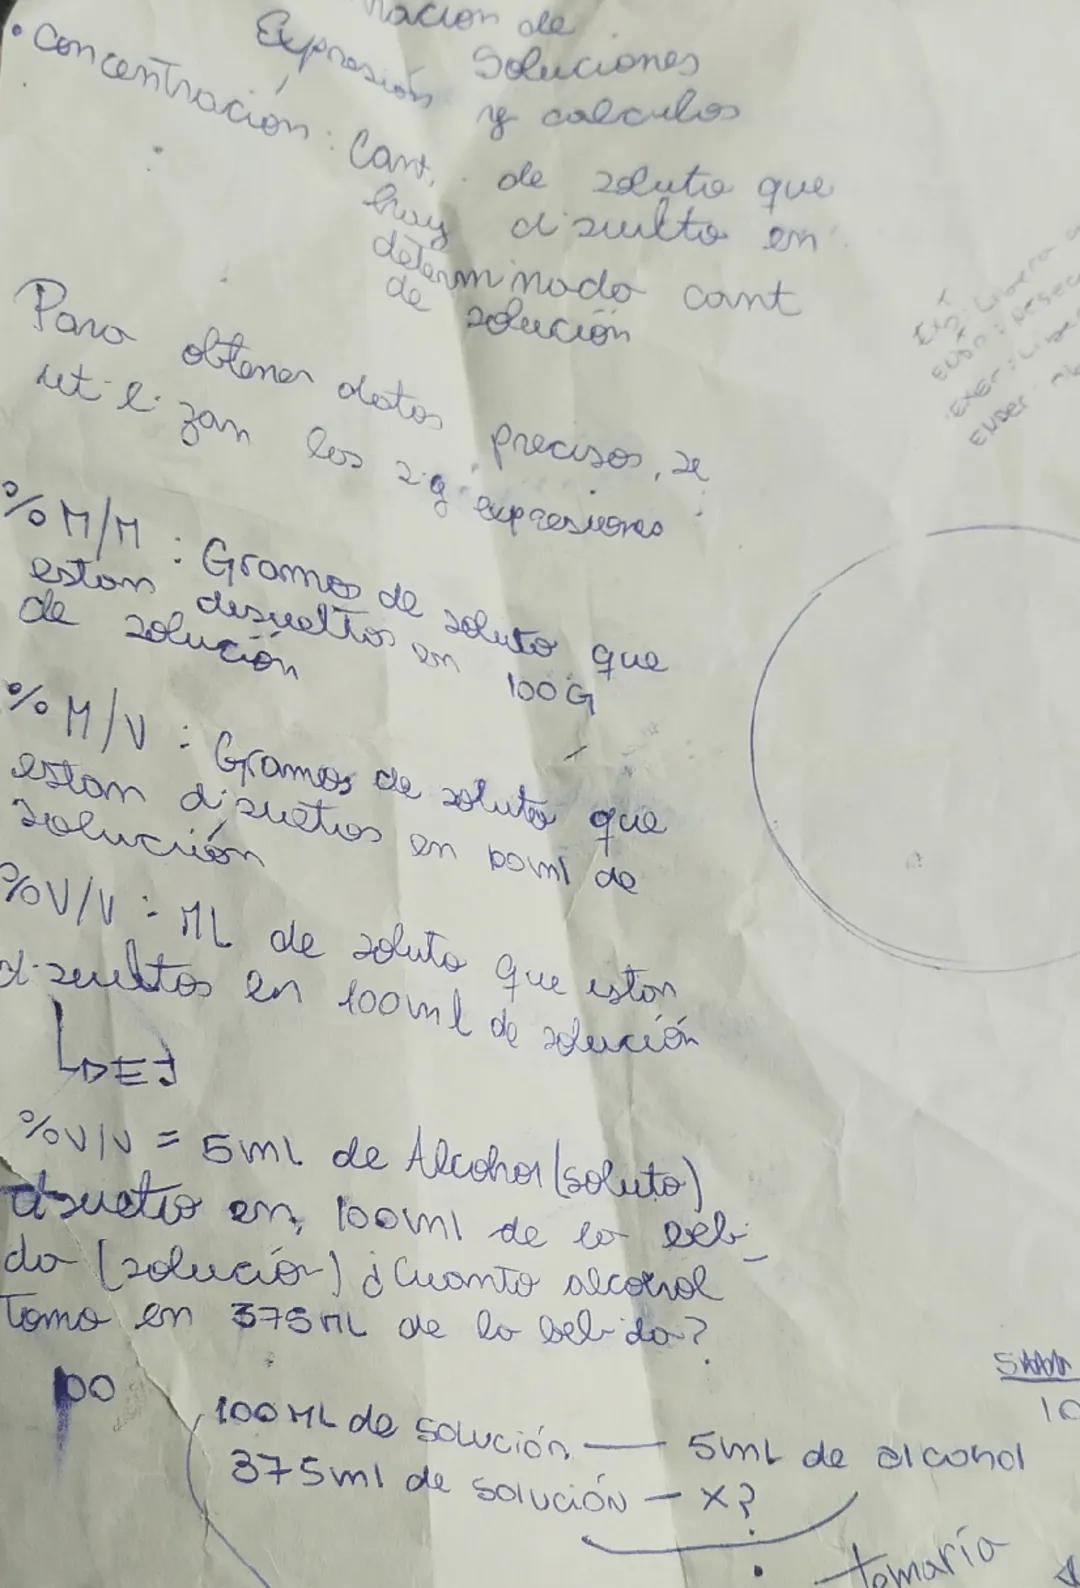 nacion de
Soluciones
Expresión y calculos
• Concentración: Cant. de soluto que
hay disuelto en
determinada cant
de solución
Para obtener datos precisos, se
utilizan las sig expresiones:
% M/M : Gramos de soluto que
estan disueltos en 100G
de solución
% M/V : Gramos de soluto que
estan disueltos en 100ml de
solución
% V/V : ML de soluto que estan
disueltos en 100ml de solución
%V/V = 5ml de Alcohol (soluto)
disuelto en 100ml de la bebi_
da (solución) ¿Cuanto alcohol
Tomo en 375ML de la bebida?
100
100ML de solución — 5ml de alcohol
375ml de solución — X?
• tomaría